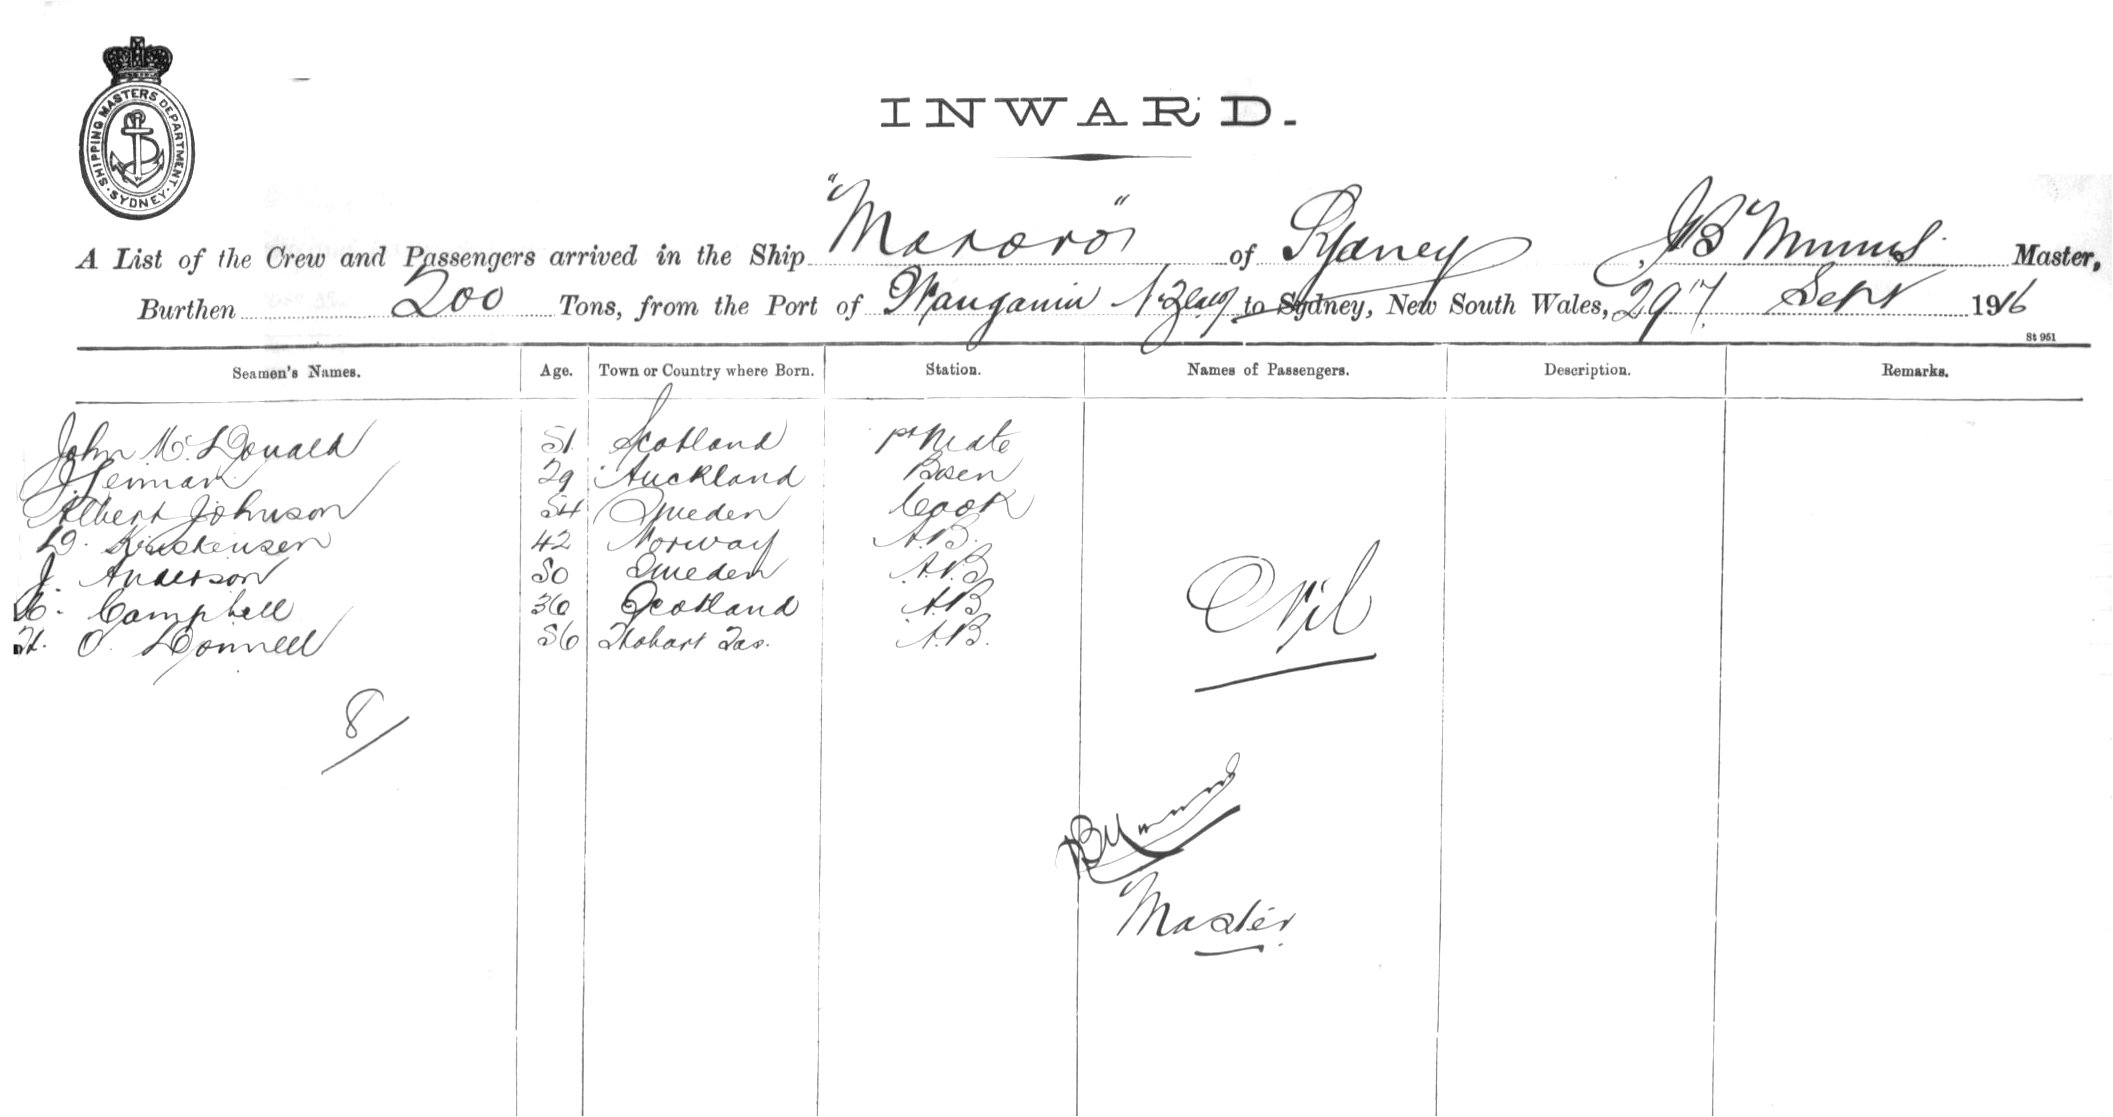 SHIPPING MASTERS DEPARTMENT. SYDNEY.
INWARD.
A List of the Crew and Passengers arrived in the Ship "Mororo" of Sydney, JB Master,
Burthen 200 Tons, from the Port of to Sydney, New South Wales, 29th Sept 1916
St 951
Seamen's Names. Age. Town or Country where Born. Station. Names of Passengers. Description. Remarks.
John McDonald 51 Scotland 1st Mate
J 29 Auckland Bosen
Albert Johnson 54 Sweden Cook
42 Norway A.B.
J. Anderson 50 Sweden A.B
Campbell 36 Scotland A.B
H. O Donnell 56 Hobart Tas. A.B.
Nil
8
Master